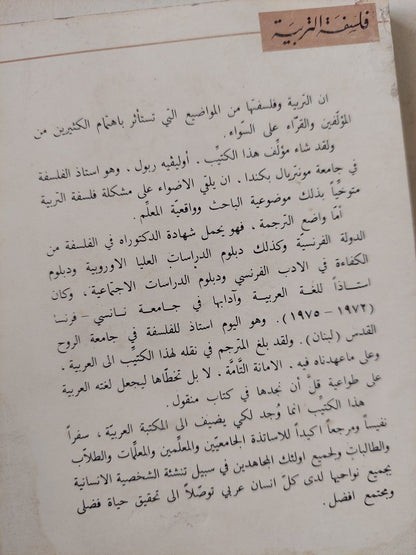 فلسفة التربية
ان التربية وفلسفتها من المواضيع التي تستأثر باهتمام الكثيرين من
المؤلّفين والقرّاء على السّواء.
ولقد شاء مؤلّف هذا الكتيّب. أوليڤيه ربول. وهو استاذ الفلسفة
في جامعة مونتريال بكندا. ان يلقي الاضواء على مشكلة فلسفة التربية
متوخّياً بذلك موضوعية الباحث وواقعيّة المعلّم.
أمّا واضع الترجمة. فهو يحمل شهادة الدكتوراه في الفلسفة من
الدولة الفرنسيّة وكذلك دبلوم الدراسات العليا الاوروبية ودبلوم
الكفاءة في الادب الفرنسي ودبلوم الدراسات الاجتماعية. وكان
استاذاً للغة العربية وآدابها في جامعة نانسي - فرنسا
(١٩٧٢ - ١٩٧٥). وهو اليوم استاذ للفلسفة في جامعة الروح
القدس (لبنان). ولقد بلغ المترجم في نقله لهذا الكتيّب الى العربية.
وعلى ماعهدناه فيه. الامانة التّامّة. لا بل تخطّاها ليجعل لغته العربية
على طواعية قلّ أن نجدها في كتاب منقول.
هذا الكتيّب انما وُجد لكي يضيف الى المكتبة العربيّة. سفراً
نفيساً ومرجعاً اكيداً للاساتذة الجامعيّين والمعلّمين والمعلّمات والطلاّب
والطالبات ولجميع اولئك المجاهدين في سبيل تنشئة الشخصية الانسانية
بجميع نواحيها لدى كلّ انسان عربي توصّلاً الى تحقيق حياة فضلى
ومجتمع افضل.